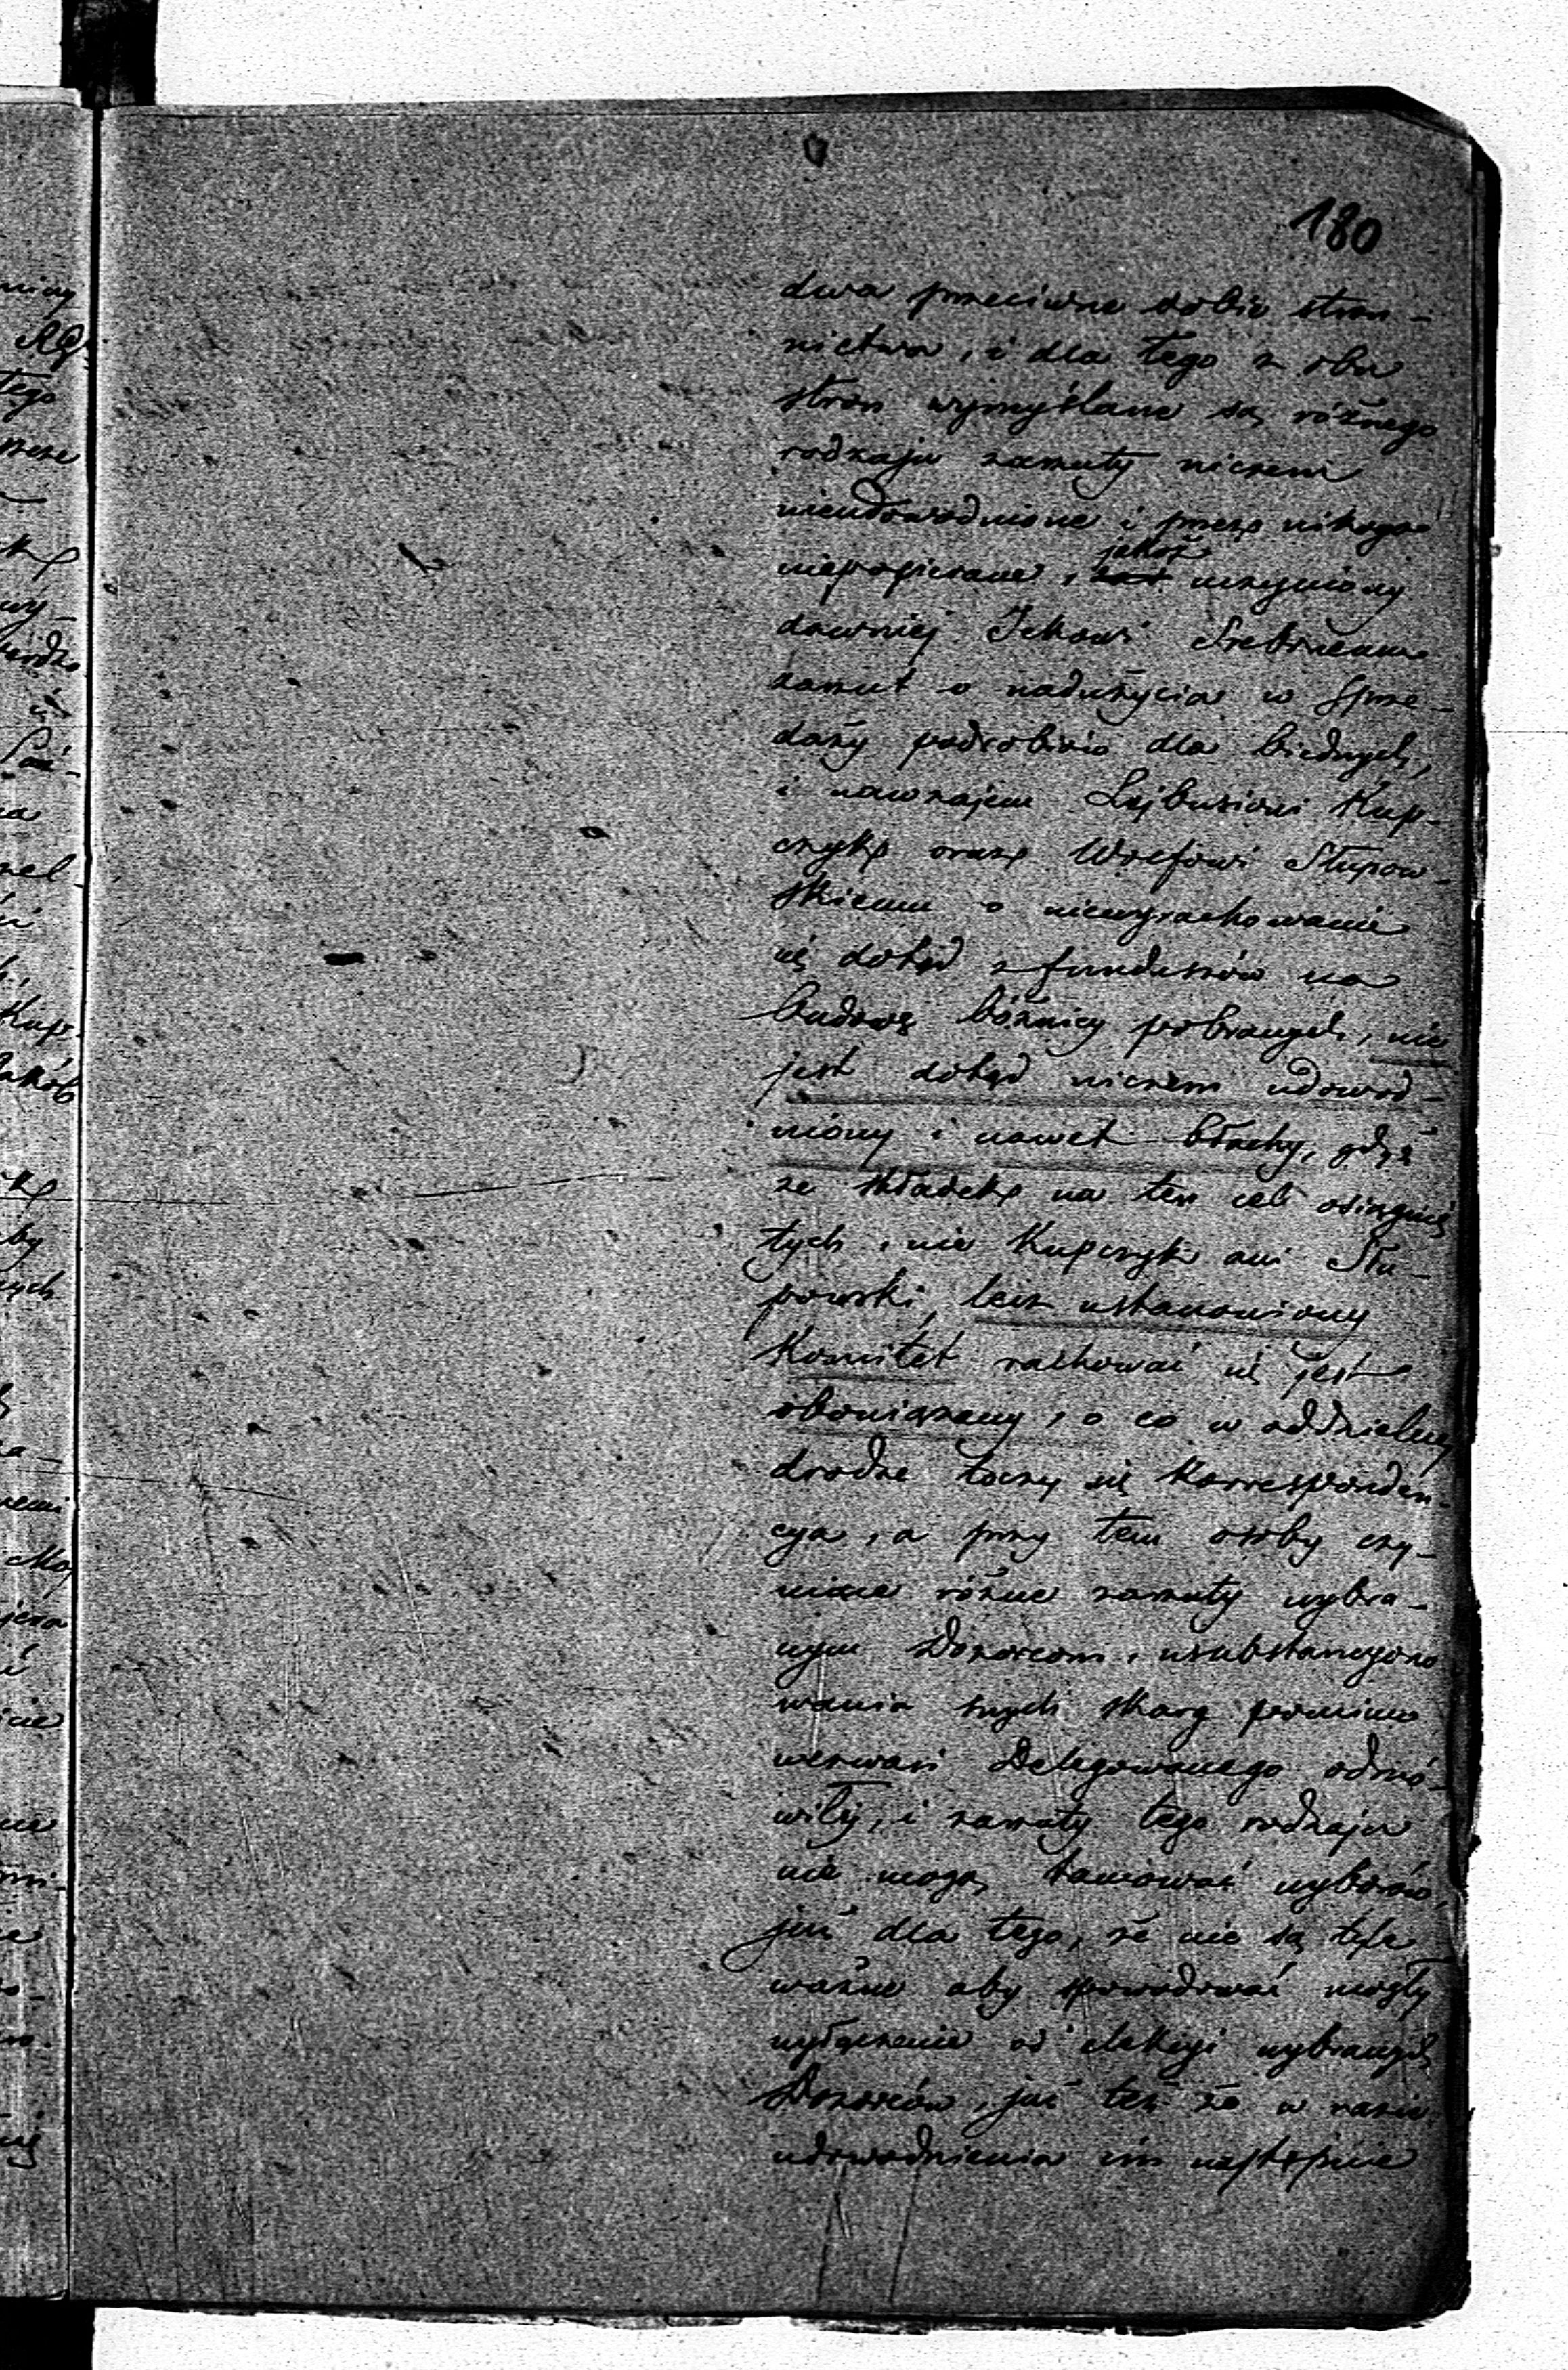 180
dwa przeciwne sobie stron-
nictwa, i dla tego z obu
stron wymyślane są różnego
rodzaju zarzuty niczem
nieudowodnione i przez nikogo
niepopierane, jakoż uczyniony
dawniej Ickowi Srebrnemu
zarzut o nadużycia w sprze-
daży podrobiów dla biednych,
i nawzajem Lejbusiowi Kup-
czyk oraz Wolfowi Słupow-
skiemu o niewyrachowanie
się dotąd z funduszów na
budowę bóżnicy pobranych, nie
jest dotąd niczem udowod-
niony i nawet błachy, gdyż
ze składek na ten cel osiągnię
tych, nie Kupczyk ani Słu-
powski, lecz ustanowiony
Komitet rachować się jest
obowiązany, o co w oddzielnej
drodze toczy się korresponden-
cya, a przy tem osoby czy-
niące różne zarzuty wybra-
nym Dozorcom, usubstancyono
wania swych skarg pomimo
wezwań Delegowanego odmó-
wiły, i zarzuty tego rodzaju
nie mogą tamować wyborów
już dla tego, że nie są tyle
ważne aby spowodować mogły
wyłączenie od elekcyi wybranych
Dozorców, już też że w razie
udowodnienia im następnie